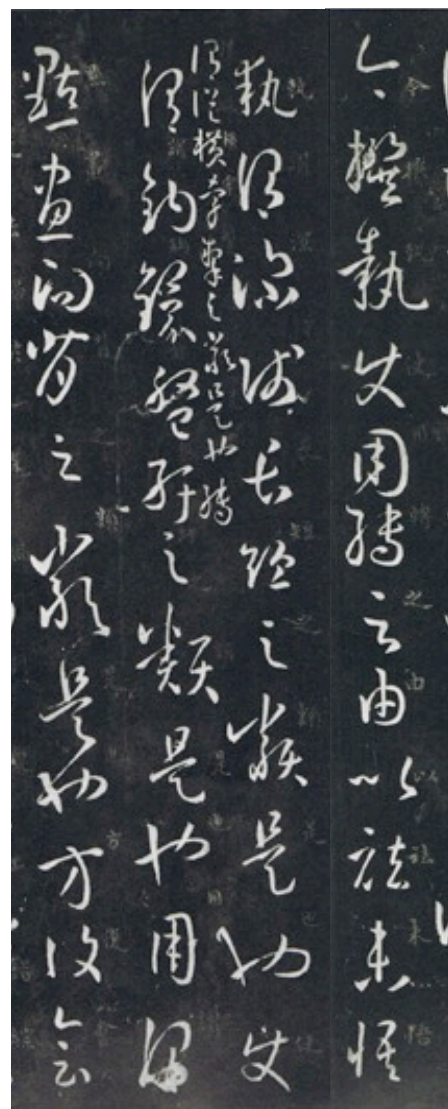 今撰執使用轉之由以祛未悟
執謂深淺長短之類是也使
謂縱橫牽掣之類是也轉
謂鉤鐶盤紆之類是也用謂
點畫向背之類是也方復會